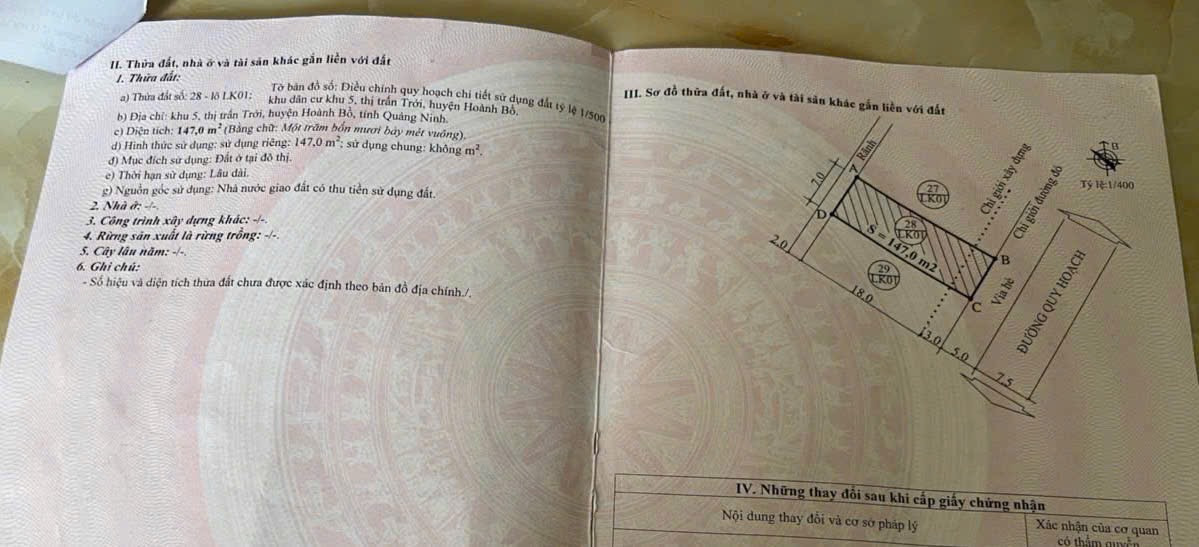 II. Thửa đất, nhà ở và tài sản khác gắn liền với đất
1. Thửa đất:
a) Thửa đất số: 28 - lô LK01; Tờ bản đồ số: Điều chỉnh quy hoạch chi tiết sử dụng đất tỷ lệ 1/500
khu dân cư khu 5, thị trấn Trới, huyện Hoành Bồ.
b) Địa chỉ: khu 5, thị trấn Trới, huyện Hoành Bồ, tỉnh Quảng Ninh.
c) Diện tích: 147,0 m² (Bằng chữ: Một trăm bốn mươi bảy mét vuông),
d) Hình thức sử dụng: sử dụng riêng: 147,0 m²; sử dụng chung: không m².
đ) Mục đích sử dụng: Đất ở tại đô thị.
e) Thời hạn sử dụng: Lâu dài.
g) Nguồn gốc sử dụng: Nhà nước giao đất có thu tiền sử dụng đất.
2. Nhà ở: -/-.
3. Công trình xây dựng khác: -/-.
4. Rừng sản xuất là rừng trồng: -/-.
5. Cây lâu năm: -/-.
6. Ghi chú:
- Số hiệu và diện tích thửa đất chưa được xác định theo bản đồ địa chính./.
III. Sơ đồ thửa đất, nhà ở và tài sản khác gắn liền với đất
B
Tỷ lệ:1/400
Rãnh
7.0
A
D
2.0
27
LK01
28
LK01
S = 147,0 m2
29
LK01
18.0
B
C
Chỉ giới xây dựng
Chỉ giới đường đỏ
Vỉa hè
ĐƯỜNG QUY HOẠCH
3.0
5.0
7.5
IV. Những thay đổi sau khi cấp giấy chứng nhận
Nội dung thay đổi và cơ sở pháp lý
Xác nhận của cơ quan
có thẩm quyền